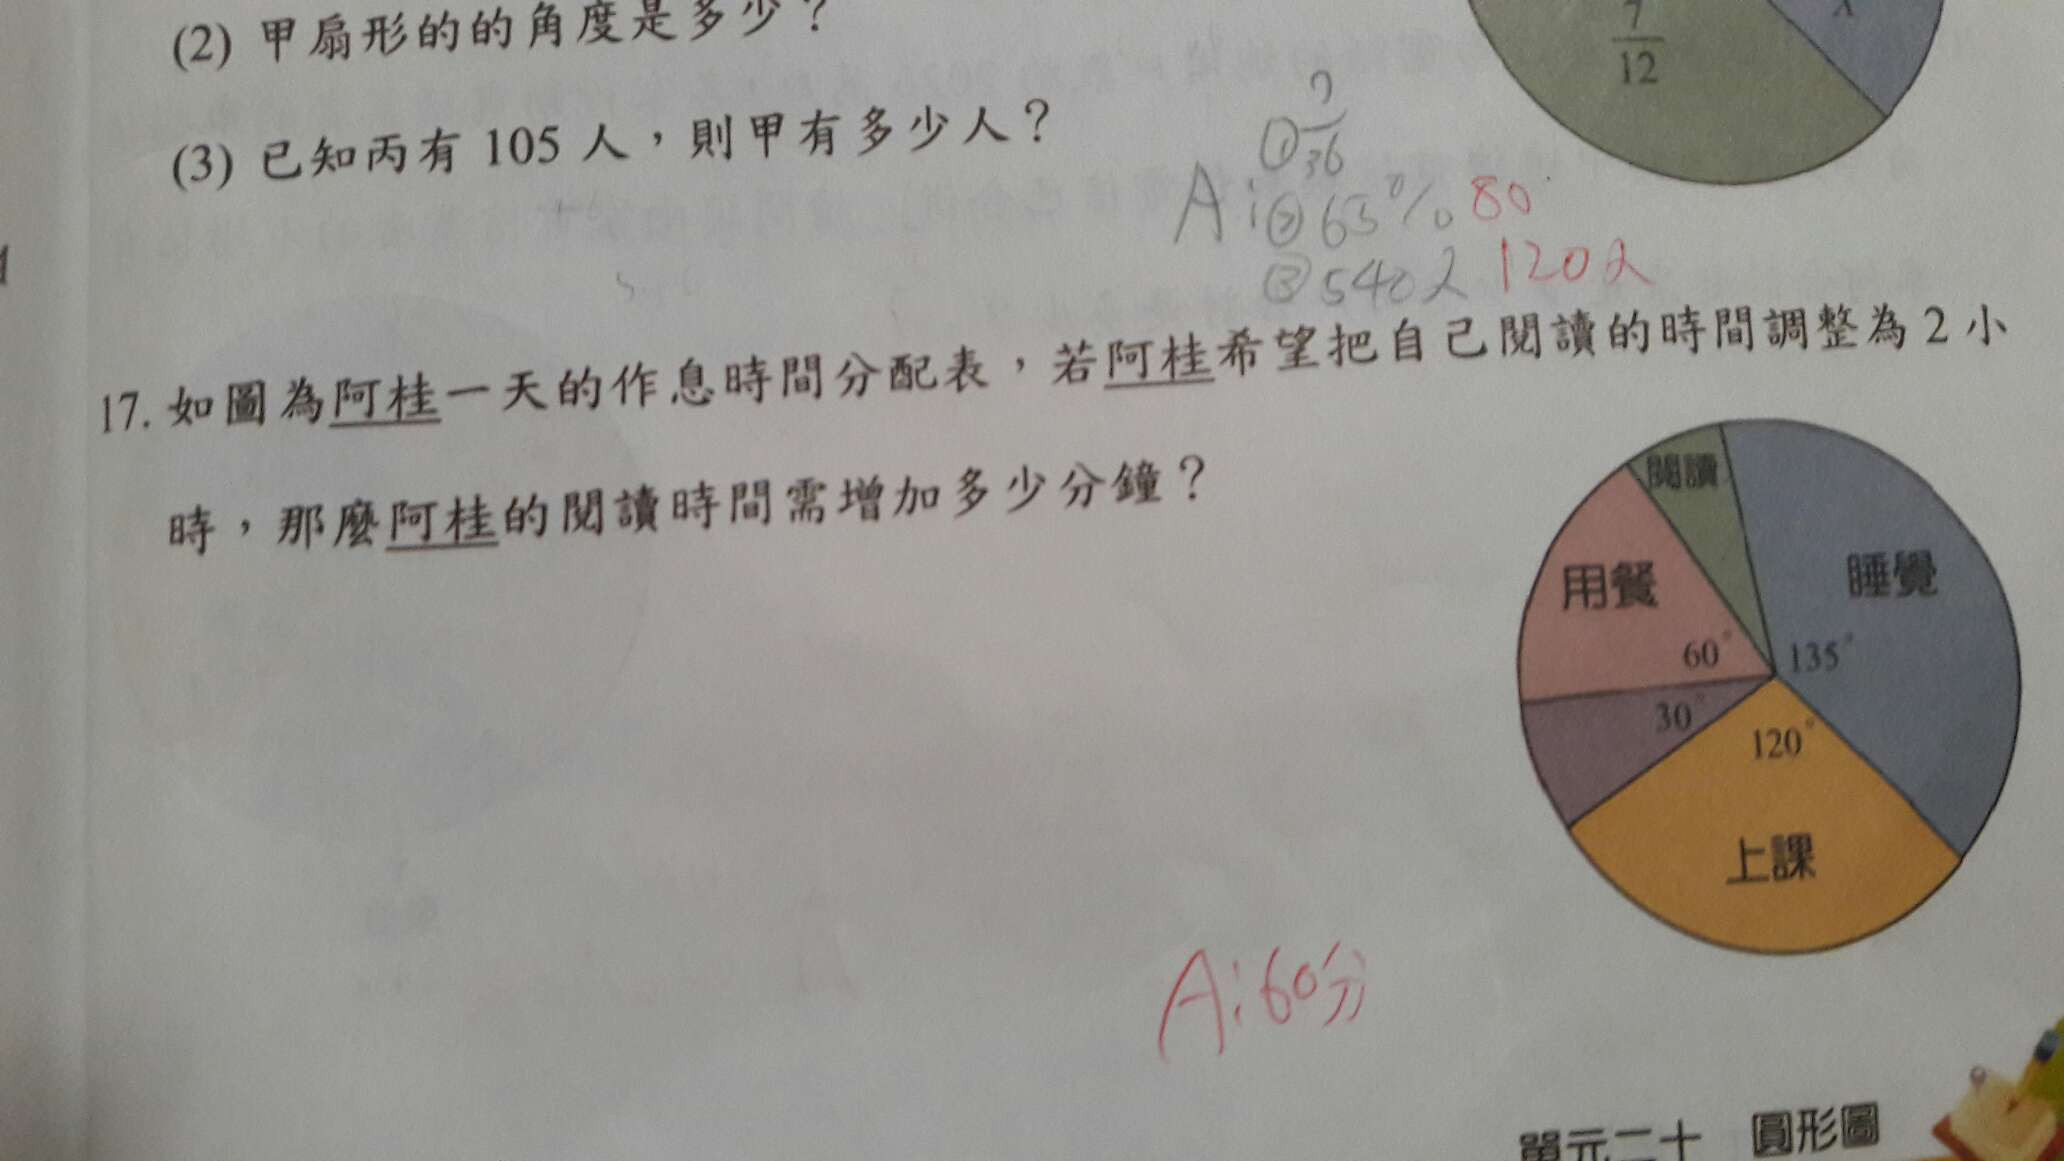 (2) 甲扇形的的角度是多少？
7
12
(3) 已知丙有 105 人，則甲有多少人？
A: ① 7/36
② 65°% 80
③ 540人 120人
17. 如圖為阿桂一天的作息時間分配表，若阿桂希望把自己閱讀的時間調整為 2 小
時，那麼阿桂的閱讀時間需增加多少分鐘？
閱讀
用餐
睡覺
60°
135°
30°
120°
上課
A:60分
單元二十 圓形圖